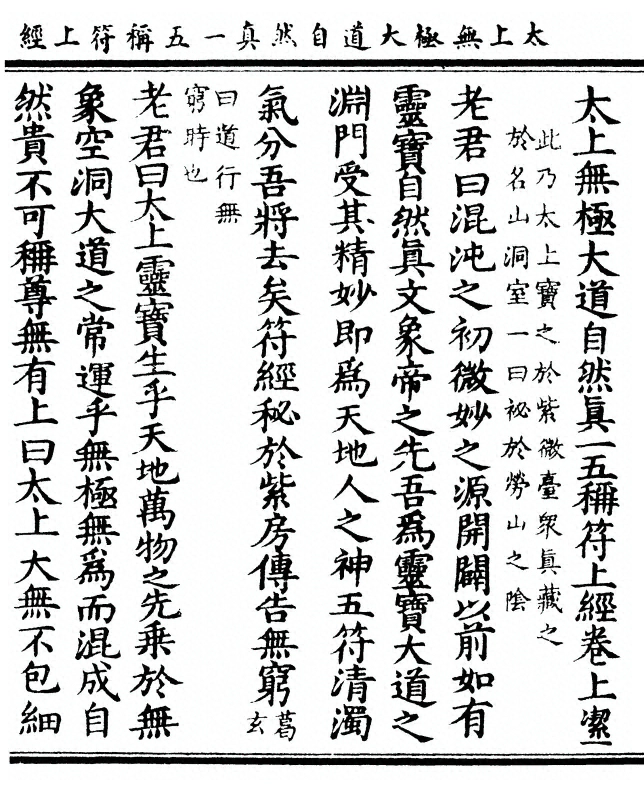 太上無極大道自然真一五稱符上經
太上無極大道自然真一五稱符上經卷上潔一
此乃太上寶之於紫微臺衆真藏之
於名山洞室一曰祕於勞山之陰
老君曰混沌之初微妙之源開闢以前如有
靈寶自然真文象帝之先吾爲靈寶大道之
淵門受其精妙即爲天地人之神五符清濁
氣分吾將去矣符經秘於紫房傳告無窮葛玄
曰道行無
窮時也
老君曰太上靈寶生乎天地萬物之先乘於無
象空洞大道之常運乎無極無爲而混成自
然貴不可稱尊無有上曰太上大無不包細